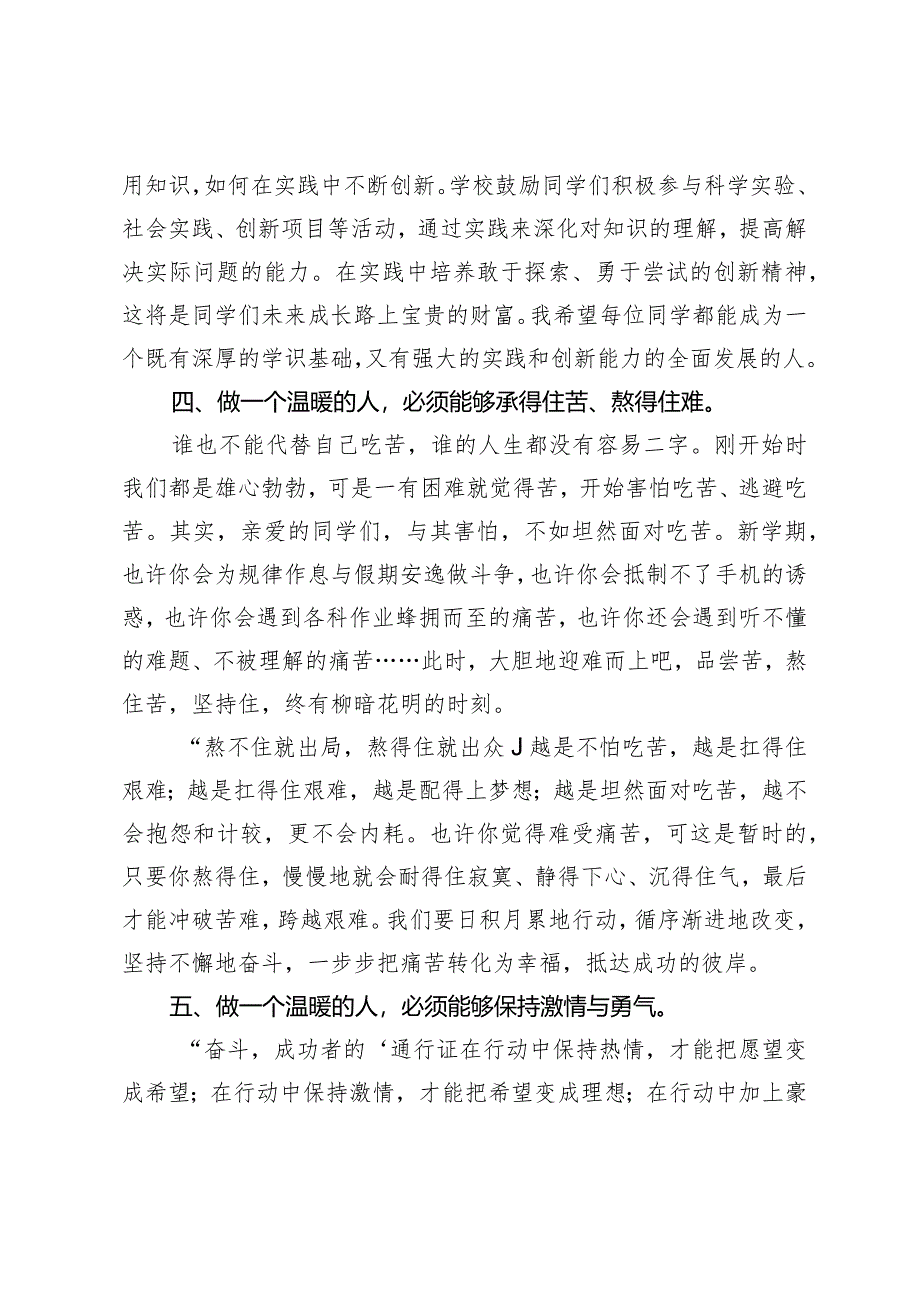 用知识，如何在实践中不断创新。学校鼓励同学们积极参与科学实验、
社会实践、创新项目等活动，通过实践来深化对知识的理解，提高解
决实际问题的能力。在实践中培养敢于探索、勇于尝试的创新精神，
这将是同学们未来成长路上宝贵的财富。我希望每位同学都能成为一
个既有深厚的学识基础，又有强大的实践和创新能力的全面发展的人。
四、做一个温暖的人，必须能够承得住苦、熬得住难。
谁也不能代替自己吃苦，谁的人生都没有容易二字。刚开始时
我们都是雄心勃勃，可是一有困难就觉得苦，开始害怕吃苦、逃避吃
苦。其实，亲爱的同学们，与其害怕，不如坦然面对吃苦。新学期，
也许你会为规律作息与假期安逸做斗争，也许你会抵制不了手机的诱
惑，也许你会遇到各科作业蜂拥而至的痛苦，也许你还会遇到听不懂
的难题、不被理解的痛苦……此时，大胆地迎难而上吧，品尝苦，熬
住苦，坚持住，终有柳暗花明的时刻。
“熬不住就出局，熬得住就出众J越是不怕吃苦，越是扛得住
艰难；越是扛得住艰难，越是配得上梦想；越是坦然面对吃苦，越不
会抱怨和计较，更不会内耗。也许你觉得难受痛苦，可这是暂时的，
只要你熬得住，慢慢地就会耐得住寂寞、静得下心、沉得住气，最后
才能冲破苦难，跨越艰难。我们要日积月累地行动，循序渐进地改变，
坚持不懈地奋斗，一步步把痛苦转化为幸福，抵达成功的彼岸。
五、做一个温暖的人，必须能够保持激情与勇气。
“奋斗，成功者的‘通行证在行动中保持热情，才能把愿望变
成希望；在行动中保持激情，才能把希望变成理想；在行动中加上豪